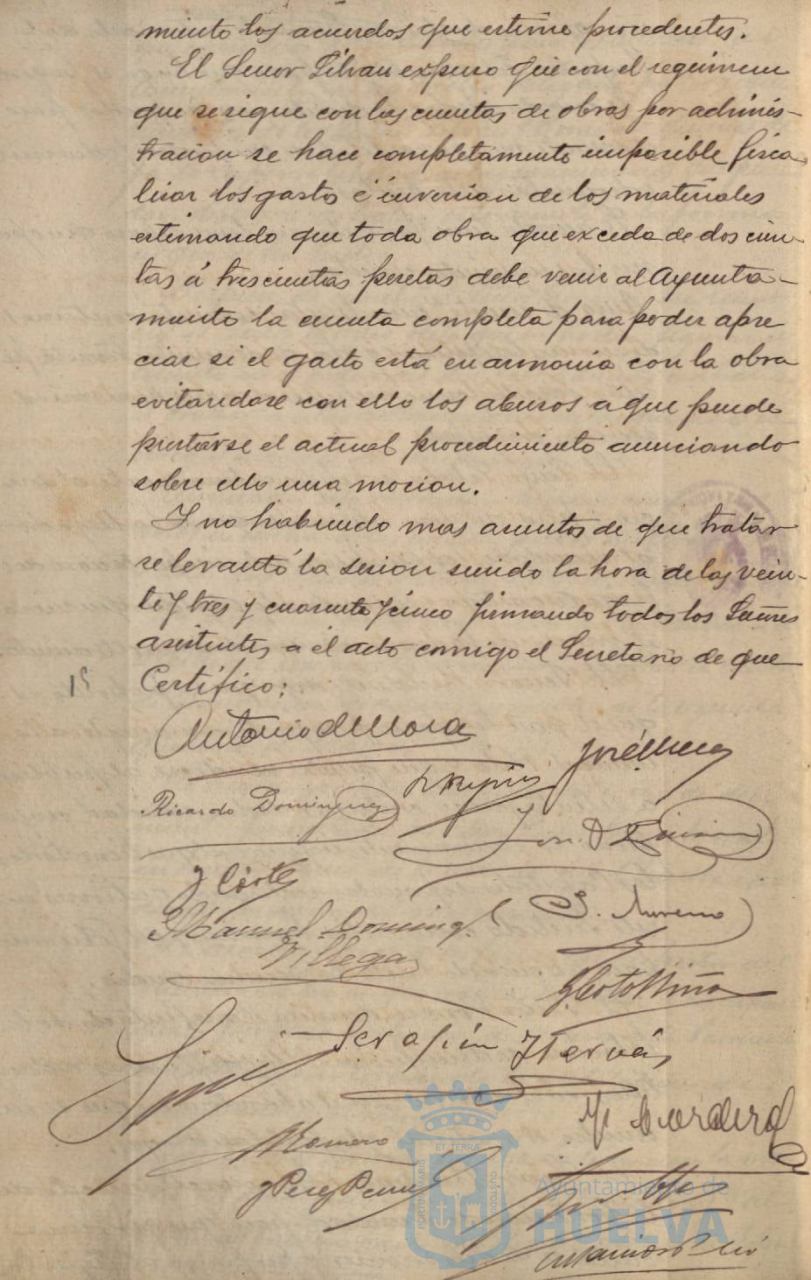 miento los acuerdos que estime procedentes.
El Señor Silvan expuso que con el regimen
que se sigue con las cuentas de obras por adminis-
tracion se hace completamente imposible fisca
lizar los gastos é inversion de los materiales
estimando que toda obra que exceda de doscien-
tas á trescientas pesetas debe venir al Ayunta-
miento la cuenta completa para poder apre
ciar si el gasto está en armonia con la obra
evitandose con ello los abusos á que puede
prestarse el actual procedimiento anunciando
sobre ello una mocion.
Y no habiendo mas asuntos de que tratar
se levantó la sesion siendo la hora de las vein-
te y tres y cuarenta y cinco firmando todos los Señores
asistentes a el acto conmigo el Secretario de que
Certifico:
Antonio de Mora
Ricardo Dominguez
J Cortes
Manuel Doming.
Villega
S. Moreno
J Coto Mora
Serafín Hervás
Romero
M Cordero
J Perez
Ayuntamiento de
HUELVA